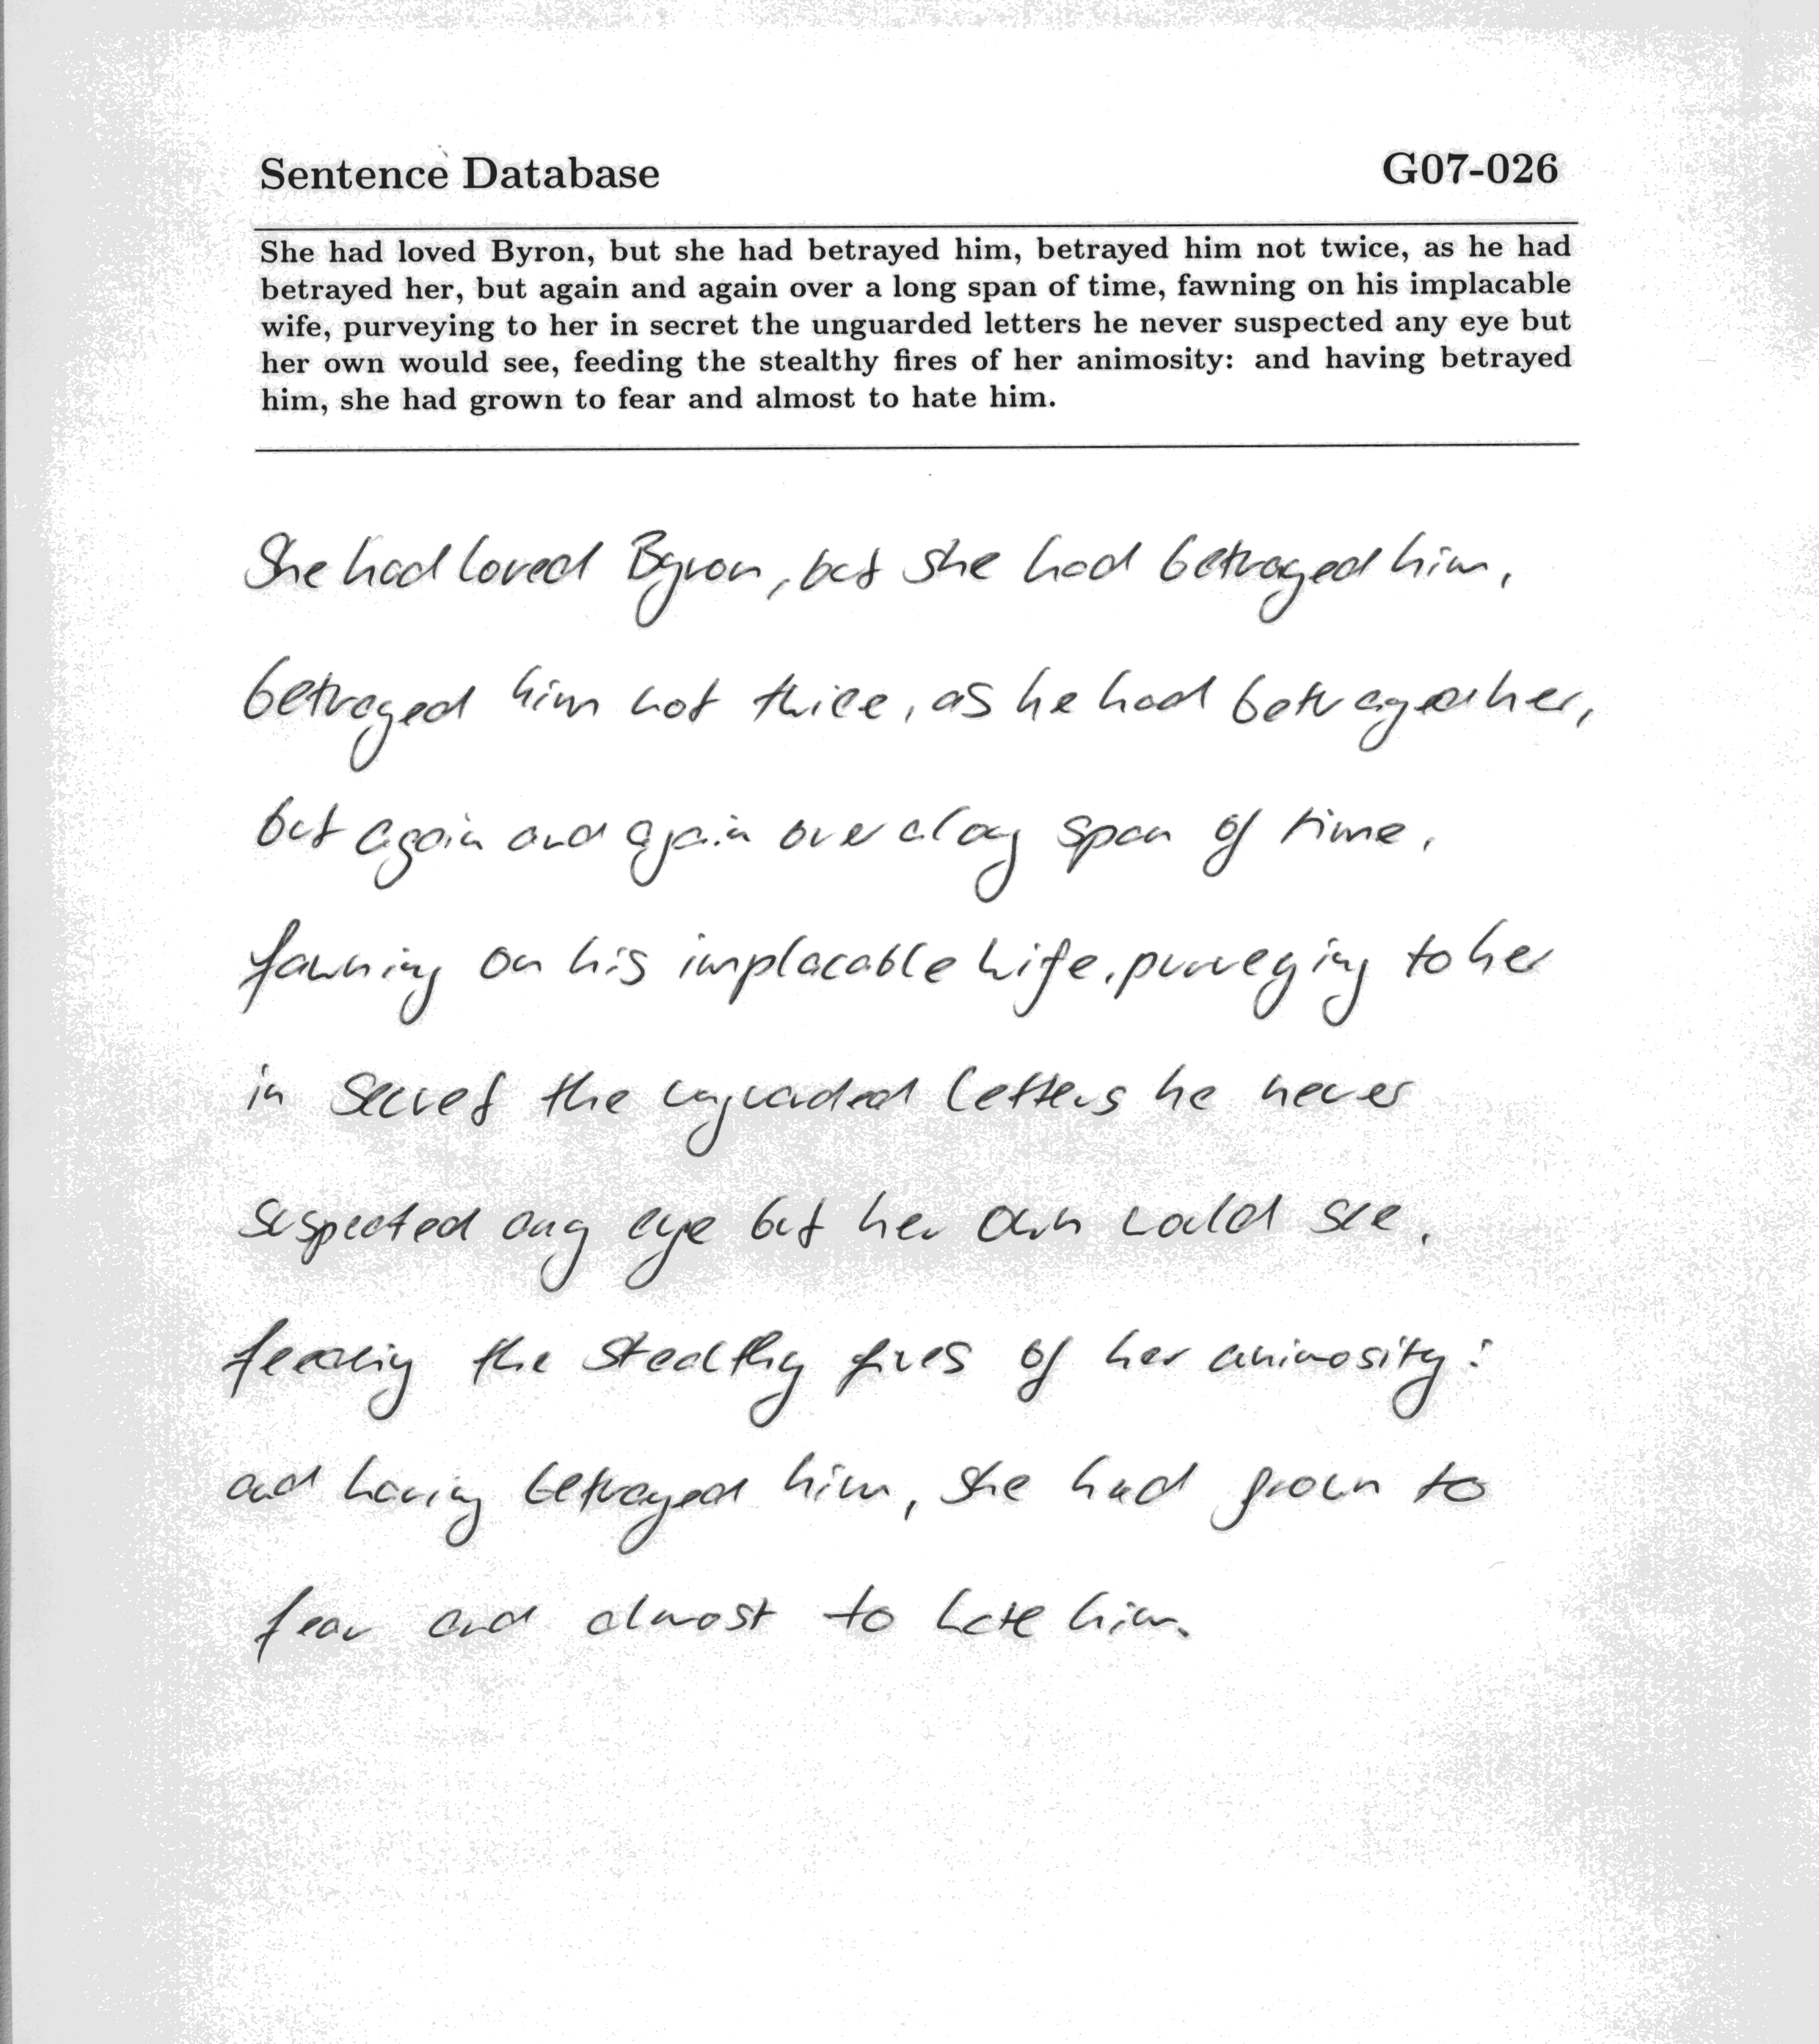 Sentence Database G07-026
She had loved Byron, but she had betrayed him, betrayed him not twice, as he had
betrayed her, but again and again over a long span of time, fawning on his implacable
wife, purveying to her in secret the unguarded letters he never suspected any eye but
her own would see, feeding the stealthy fires of her animosity: and having betrayed
him, she had grown to fear and almost to hate him.
She had loved Byron, but she had betrayed him,
betrayed him not twice, as he had betrayed her,
but again and again over a long span of time,
fawning on his implacable wife, purveying to her
in secret the unguarded letters he never
suspected any eye but her own would see,
feeding the stealthy fires of her animosity:
and having betrayed him, she had grown to
fear and almost to hate him.